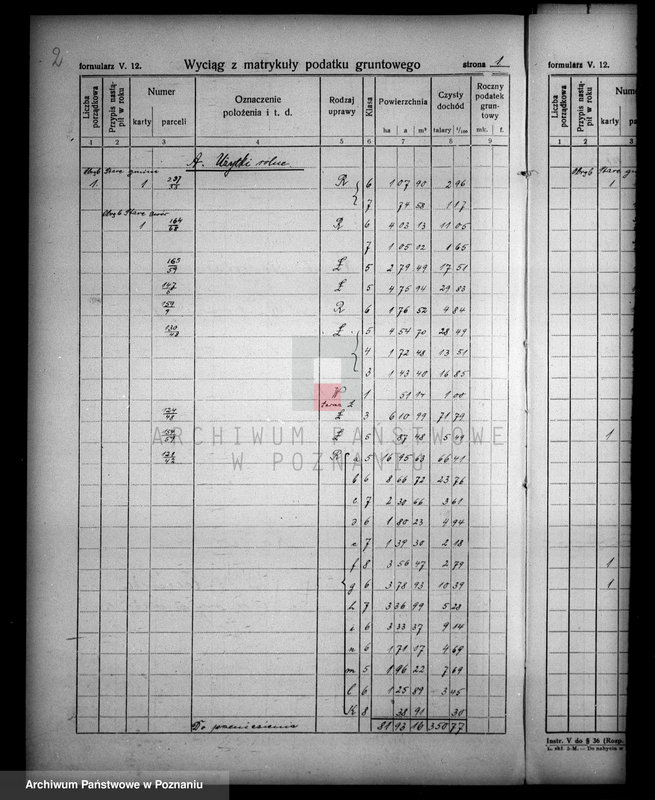 2
formularz V. 12.
Wyciąg z matrykuły podatku gruntowego
strona 1
Liczba porządkowa
Przypis nastąpił w roku
Numer
karty
parceli
Oznaczenie położenia i t. d.
Rodzaj uprawy
Klasa
Powierzchnia
ha a m²
Czysty dochód
talary 1/100
Roczny podatek gruntowy
mk. f.
1 2 3 4 5 6 7 8 9
A. Użytki rolne
Obręb Stare gmina
1. 1 237/55 R 6 1 07 90 2 96
7 74 58 1 17
Obręb Stare dwór
1 164/68 R 6 4 03 13 11 05
7 1 05 02 1 65
165/59 Ł 5 2 79 49 17 51
147/5 Ł 5 4 75 94 29 83
159/9 R 6 1 76 52 4 84
130/48 Ł 5 4 54 70 28 49
4 1 72 48 13 51
3 1 43 40 16 85
W 1 51 14 1 00
teraz Ł
124/48 Ł 3 6 10 99 71 79
Ł 5 87 48 5 49
128/42 R a 5 16 95 63 66 41
b 6 8 66 72 23 76
c 7 2 30 66 3 61
d 6 1 80 23 4 94
e 7 1 39 30 2 18
f 8 3 56 47 2 79
g 6 3 78 93 10 39
h 7 3 36 99 5 28
i 6 3 33 37 9 14
n 6 1 71 17 4 69
m 5 1 96 22 7 69
l 6 1 25 89 3 45
k 8 38 91 30
Do przeniesienia 81 93 16 350 77
formularz V. 12.
Liczba porządkowa
Przypis nastąpił w roku
Num
karty
parce
1 2 3
Obręb Stare
1
1
1
1
Instr. V do § 36 (Rozp.
ARCHIWUM PAŃSTWOWE
W POZNANIU
Archiwum Państwowe w Poznaniu